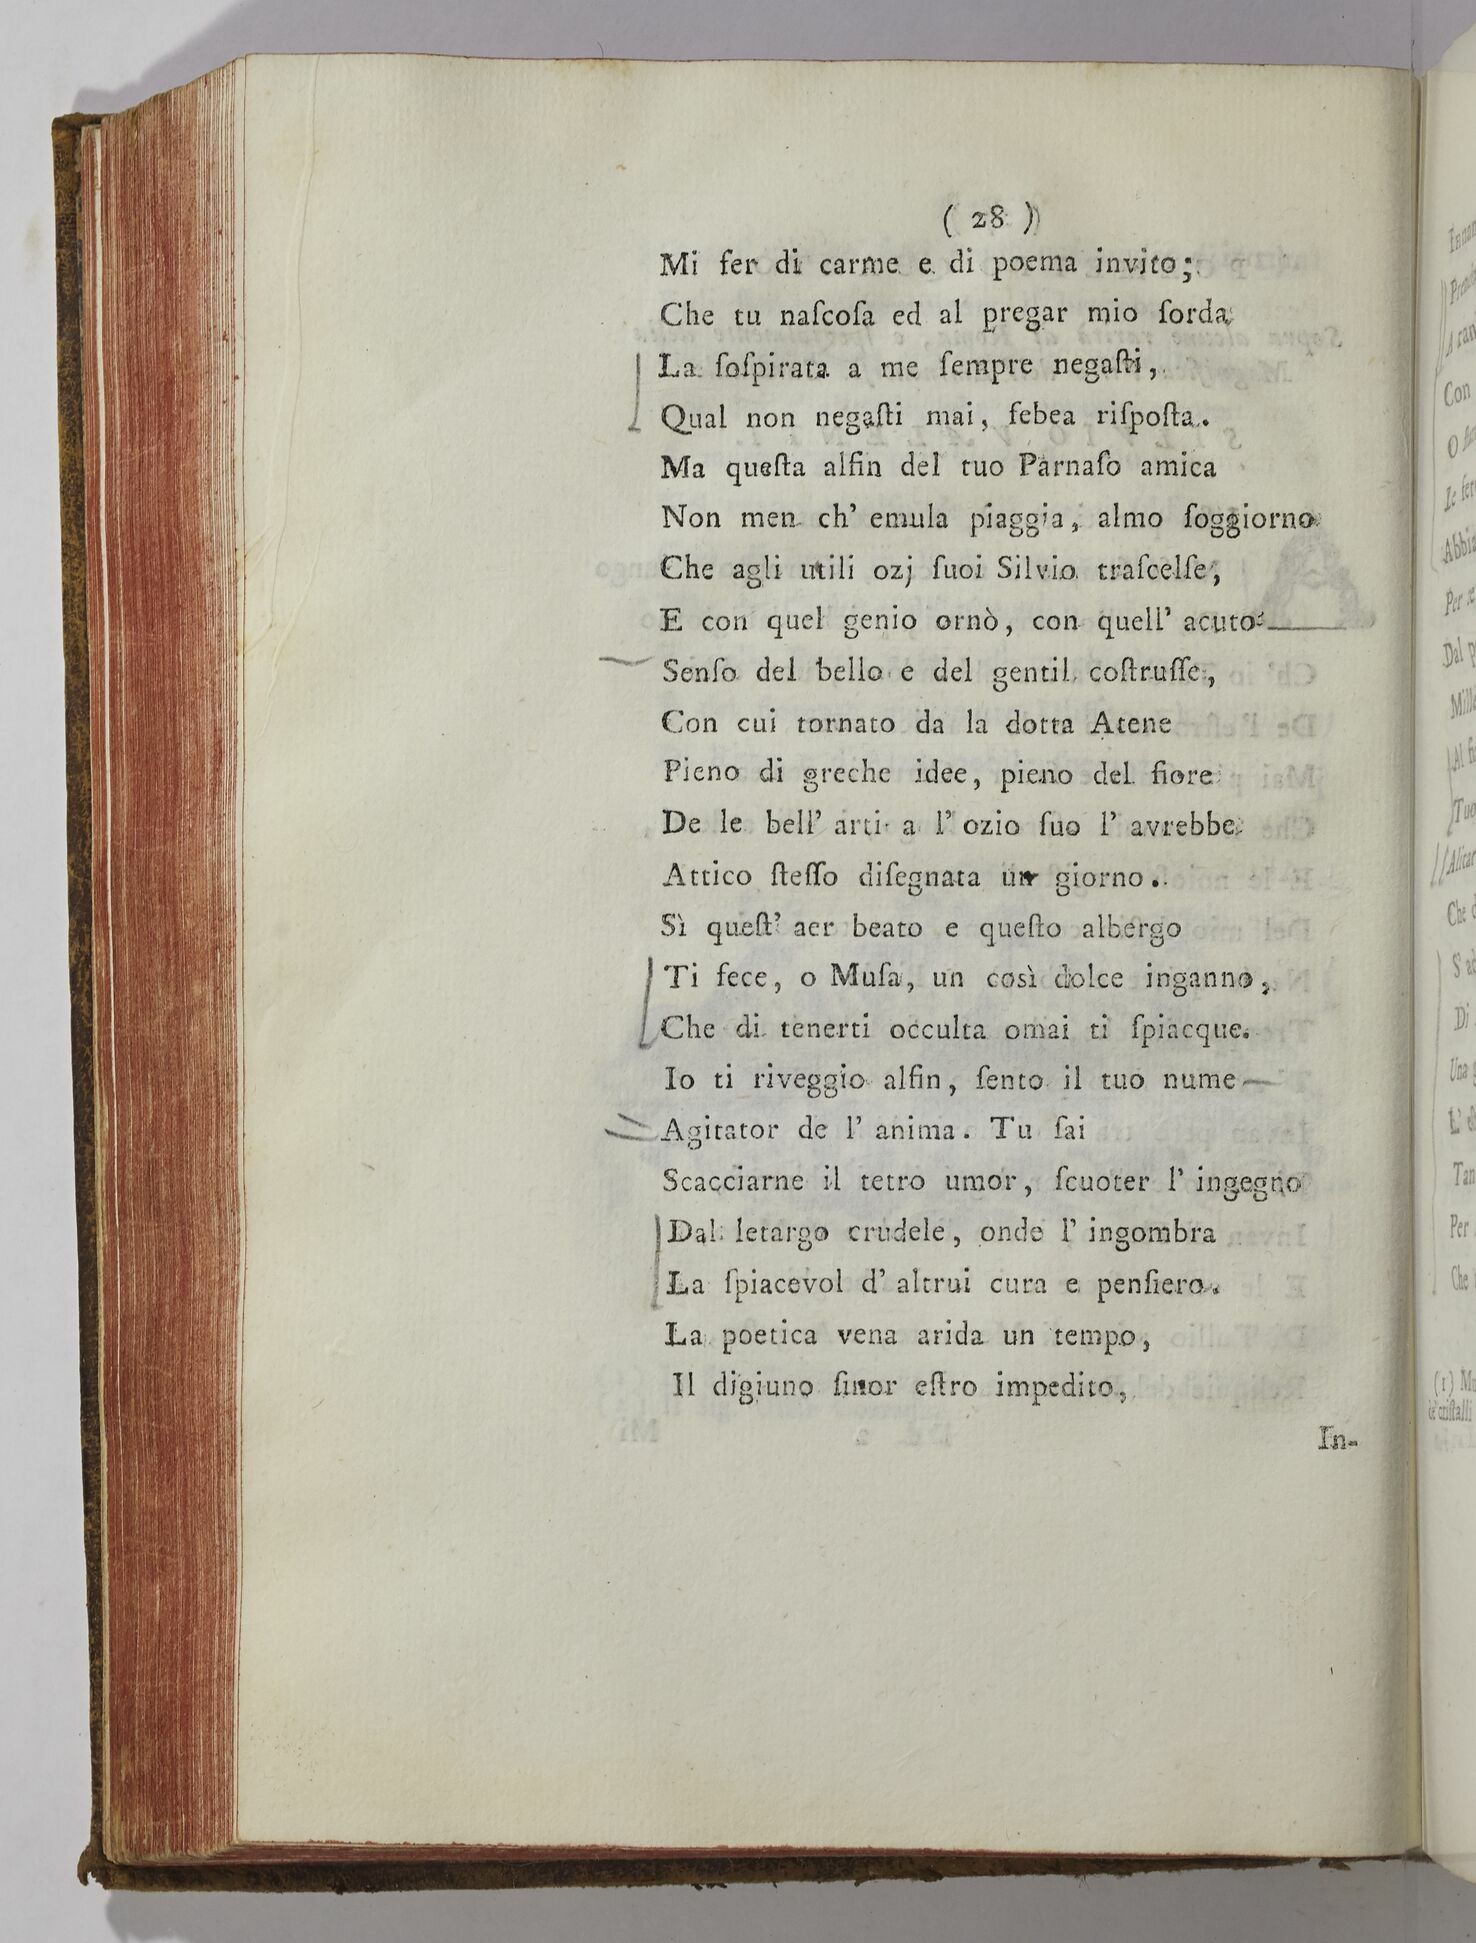 ( 28 )
Mi fer di carme e di poema invito;
Che tu naſcoſa ed al pregar mio ſorda
La ſoſpirata a me ſempre negaſti,
Qual non negaſti mai, febea riſpoſta.
Ma queſta alfin del tuo Parnaſo amica
Non men ch' emula piaggia, almo ſoggiorno
Che agli utili ozj ſuoi Silvio traſcelſe,
E con quel genio ornò, con quell' acuto
Senſo del bello e del gentil coſtruſſe,
Con cui tornato da la dotta Atene
Pieno di greche idee, pieno del fiore
De le bell' arti a l' ozio ſuo l' avrebbe
Attico ſteſſo diſegnata un giorno.
Sì queſt' aer beato e queſto albergo
Ti fece, o Muſa, un così dolce inganno,
Che di tenerti occulta omai ti ſpiacque.
Io ti riveggio alfin, ſento il tuo nume
Agitator de l' anima. Tu ſai
Scacciarne il tetro umor, ſcuoter l' ingegno
Dal letargo crudele, onde l' ingombra
La ſpiacevol d' altrui cura e penſiero.
La poetica vena arida un tempo,
Il digiuno ſinor eſtro impedito,
In-
Con
Per
Dal
Mille
Al
Tuo
Che
Di
Una
Per
Che
(1)